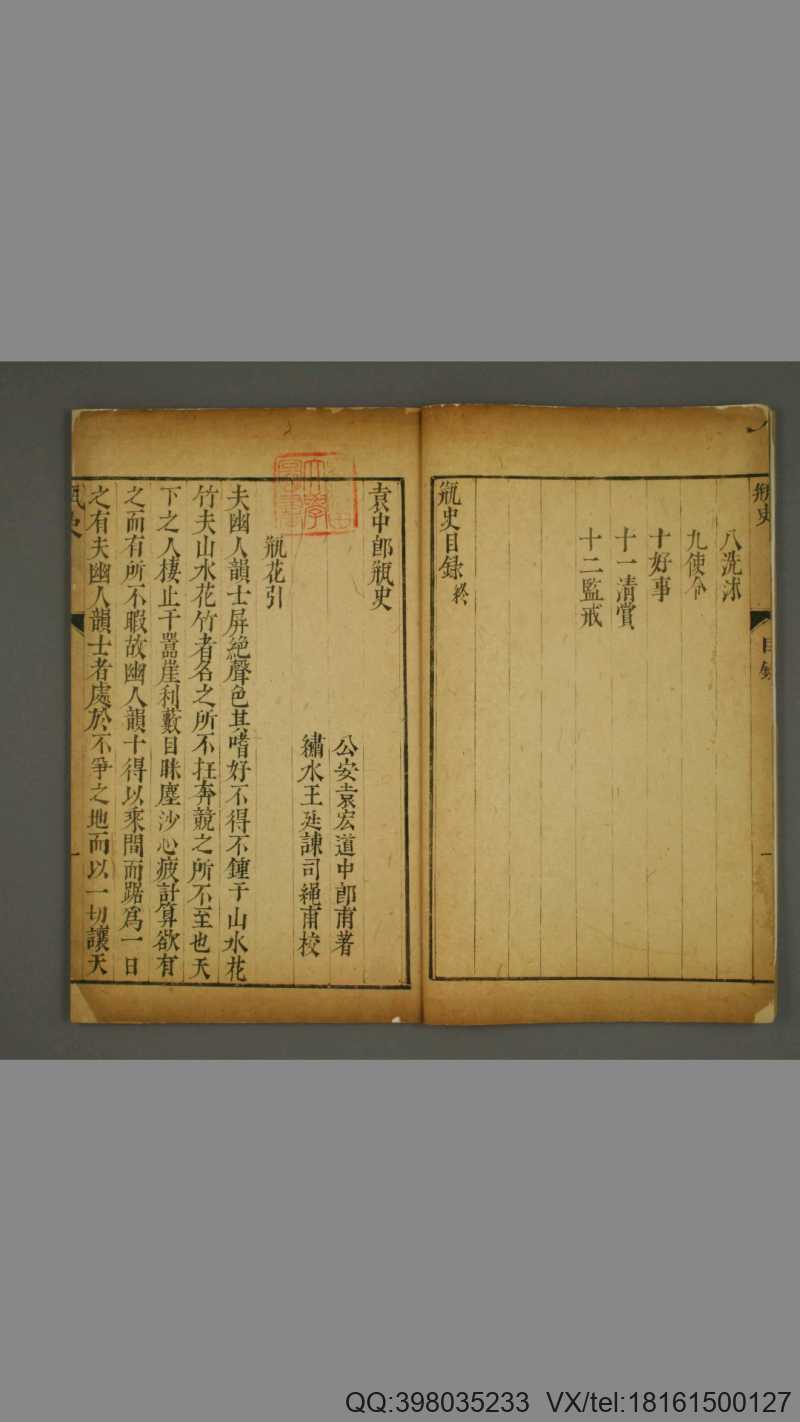 瓶史
目錄
一
八洗沐
九使令
十好事
十一清賞
十二監戒
瓶史目録終
袁中郎瓶史
公安袁宏道中郎甫著
繡水王廷諫司繩甫校
瓶花引
夫幽人韻士屏絶聲色其嗜好不得不鍾于山水花
竹夫山水花竹者名之所不在奔競之所不至也天
下之人棲止于囂崖利藪目眯塵沙心疲計算欲有
之而有所不暇故幽人韻士得以乘間而踞爲一日
之有夫幽人韻士者處於不爭之地而以一切讓天
瓶史
一
QQ:398035233 VX/tel:18161500127